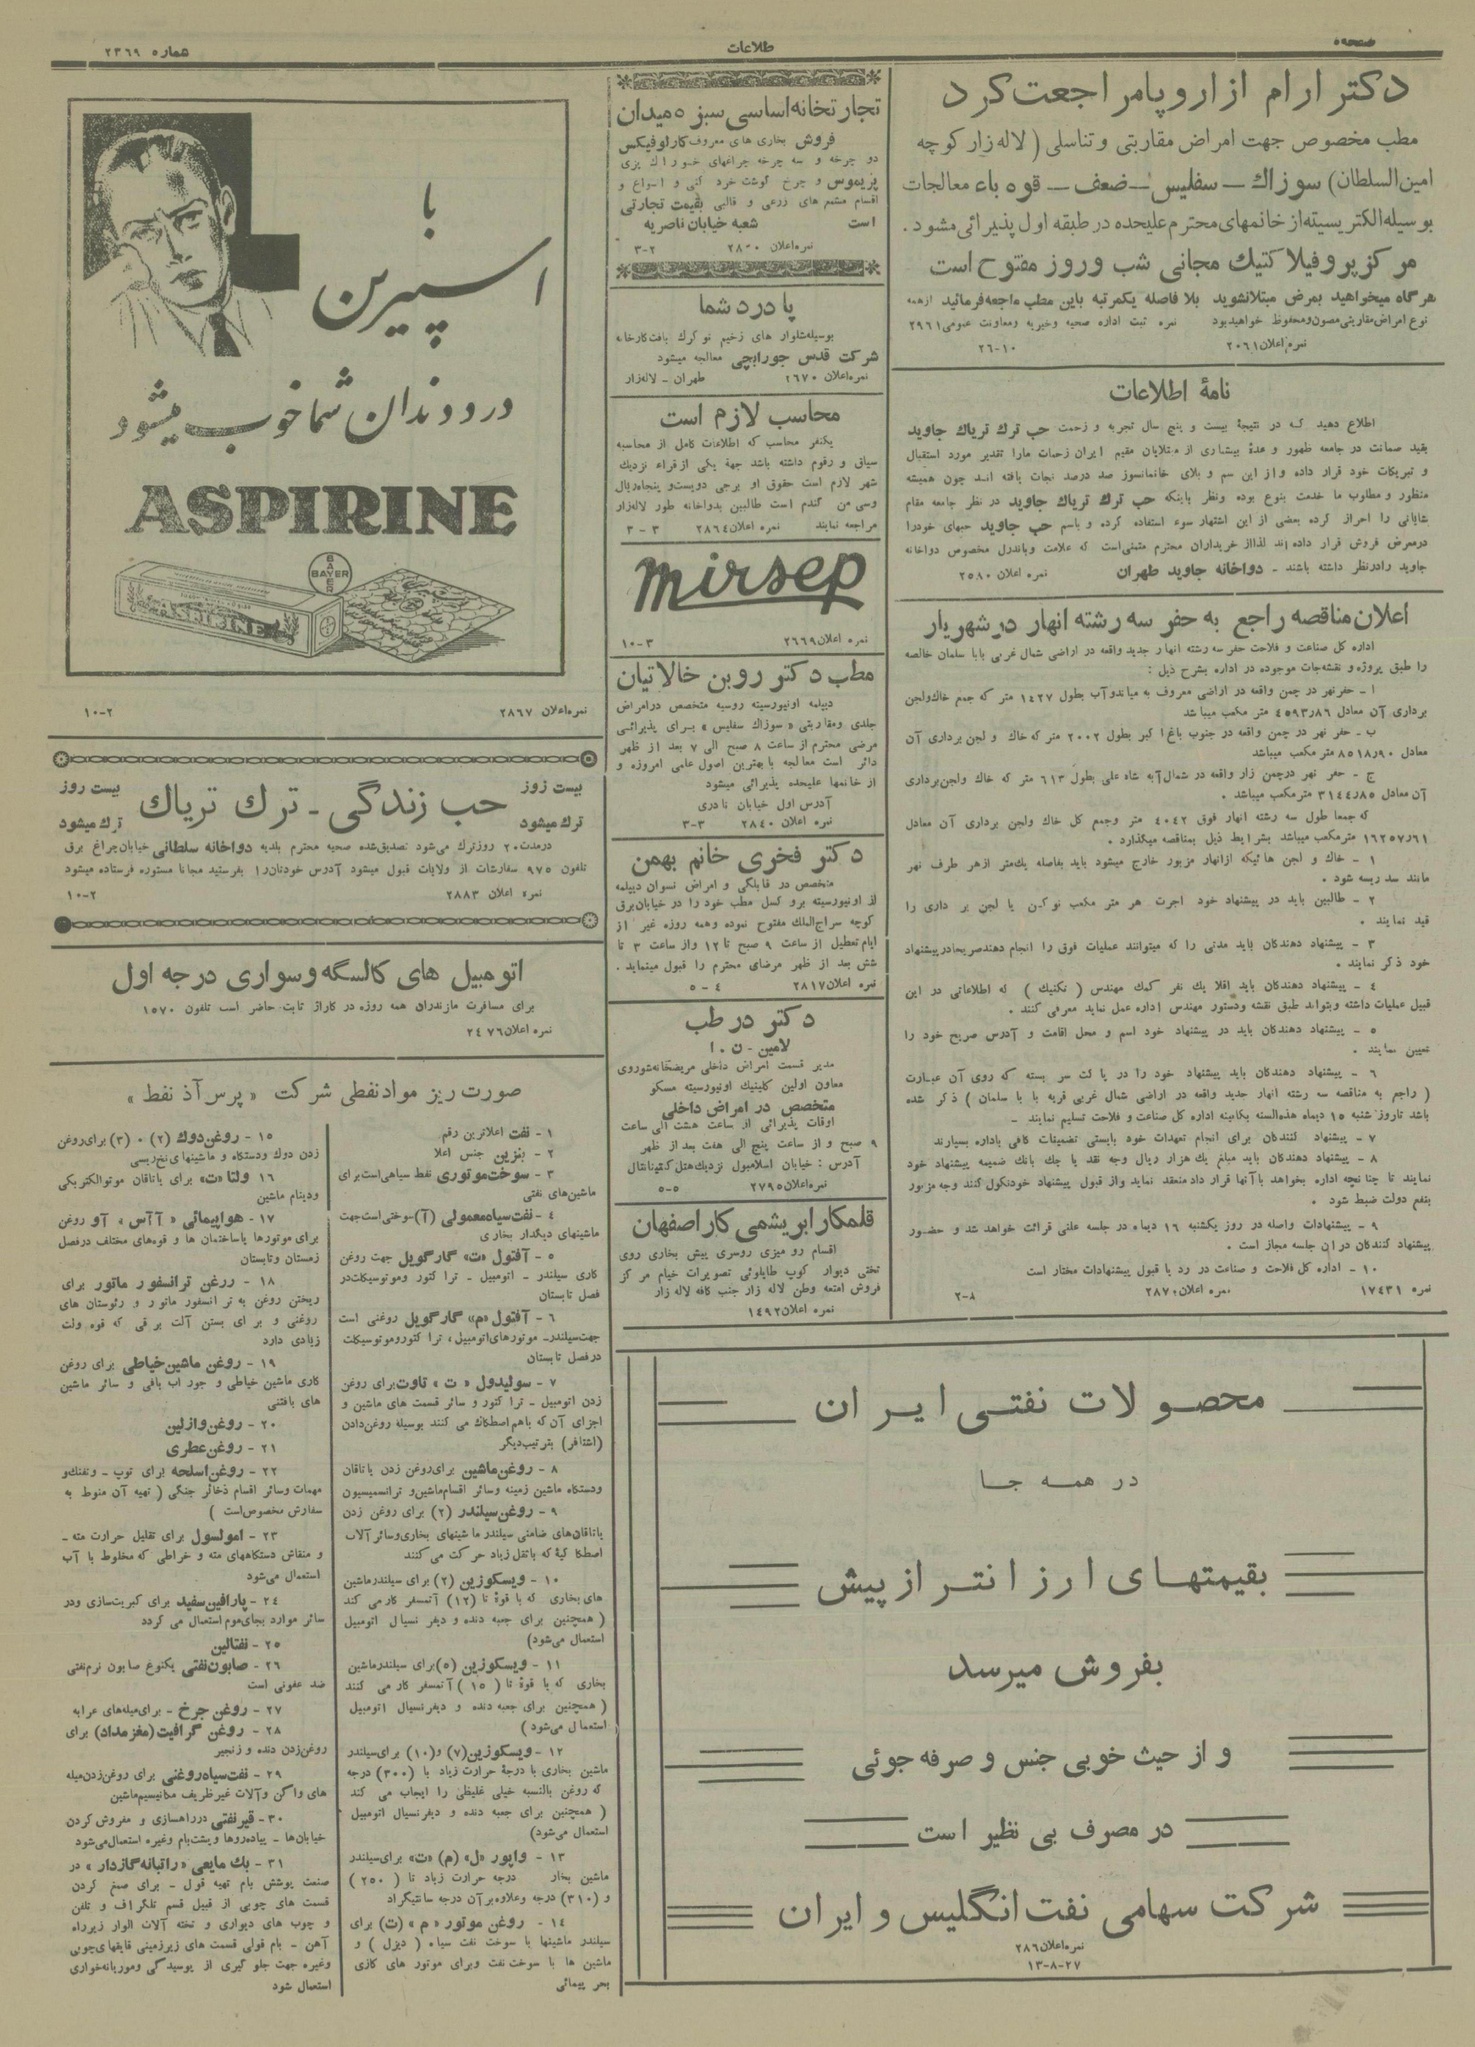 صفحه ۵
طلاعات
شماره ۲۳۶۹
دکتر ارام از اروپا مراجعت کرد
مطب مخصوص جهت امراض مقاربتی و تناسلی ( لاله زار کوچه
امین السلطان) سوزاك – سفلیس – ضعف – قوه باء معالجات
بوسیله الکتریسیته از خانمهای محترم علیحده در طبقه اول پذیرائی مشود .
مرکز پروفیلاکتیك مجانی شب وروز مفتوح است
هرگاه میخواهید بمرض مبتلا نشوید بلا فاصله یکمرتبه باین مطب مراجعه فرمائید ازهمه
نوع امراض مقاربتی مصون و محفوظ خواهید بود نمره ثبت اداره صحیه و خیریه ومعاونت عمومی ۲۹۶۱
نمره اعلان ۲۰۶۱ ۲۶-۱۰
نامهٔ اطلاعات
اطلاع دهید که در نتیجهٔ بیست و پنج سال تجربه و زحمت حب ترك تریاك جاوید
بقید ضمانت در جامعه ظهور و عدهٔ بیشماری از مبتلایان مقیم ایران زحمات مارا تقدیر مورد استقبال
و تبریکات خود قرار داده و از این سم و بلای خانمانسوز صد درصد نجات یافته اند چون همیشه
منظور و مطلوب ما خدمت بنوع بوده ونظر باینکه حب ترك تریاك جاوید در نظر جامعه مقام
شایانی را احراز کرده بعضی از این اشتهار سوء استفاده کرده و باسم حب جاوید حبهای خودرا
درمعرض فروش قرار داده اند لذا از خریداران محترم متمنی است که علامت وباندرل مخصوص دواخانه
جاوید رادرنظر داشته باشند – دواخانه جاوید طهران نمره اعلان ۲۵۸۰
اعلان مناقصه راجع به حفر سه رشته انهار در شهریار
اداره کل صناعت و فلاحت حفر سه رشته انهار جدید واقعه در اراضی شمال غربی بابا سلمان خالصه
را طبق پروژه و نقشه‌جات موجوده در اداره بشرح ذیل :
ا – حفرنهر در چمن واقعه در اراضی معروف به میاندوآب بطول ۱۴۲۷ متر که جمع خاك ولجن
برداری آن معادل ۴۵۹۳٫۸۶ متر مکعب میباشد
ب – حفر نهر در چمن واقعه در جنوب باغ اکبر بطول ۲۰۰۲ متر که خاك و لجن برداری آن
معادل ۸۵۱۸٫۹۰ متر مکعب میباشد
ج – حفر نهر درچمن زار واقعه در شمال آبه شاه علی بطول ۶۱۳ متر که خاك ولجن برداری
آن معادل ۳۱۴۴٫۸۵ مترمکعب میباشد .
که جمعا طول سه رشته انهار فوق ۴۰۴۲ متر وجمع کل خاك ولجن برداری آن معادل
۱۶۲۵۷٫۶۱ مترمکعب میباشد بشرایط ذیل بمناقصه میگذارد .
۱ – خاك و لجن هائیکه ازانهار مزبور خارج میشود باید بفاصله یك متر ازهر طرف نهر
مانند سد ریسه شود .
۲ – طالبین باید در پیشنهاد خود اجرت هر متر مکعب نوکنی یا لجن بر داری را
قید نمایند .
۳ – پیشنهاد دهندگان باید مدتی را که میتوانند عملیات فوق را انجام دهند صریحا در پیشنهاد
خود ذکر نمایند .
۴ – پیشنهاد دهندگان باید اقلا یك نفر کمك مهندس ( تکنیك ) که اطلاعاتی در این
قبیل عملیات داشته وبتواند طبق نقشه ودستور مهندس اداره عمل نماید معرفی کنند .
۵ – پیشنهاد دهندگان باید در پیشنهاد خود اسم و محل اقامت و آدرس صریح خود را
تعیین نمایند .
۶ – پیشنهاد دهندگان باید پیشنهاد خود را در پاکت سر بسته که روی آن عبارت
( راجع به مناقصه سه رشته انهار جدید واقعه در اراضی شمال غربی قریه با با سلمان ) ذکر شده
باشد تاروز شنبه ۱۵ دیماه هذه‌السنه بکابینه اداره کل صناعت و فلاحت تسلیم نمایند –
۷ – پیشنهاد کنندگان برای انجام تعهدات خود بایستی تضمینات کافی باداره بسپارند
۸ – پیشنهاد دهندگان باید مبلغ یك هزار ریال وجه نقد یا چك بانك ضمیمه پیشنهاد خود
نمایند تا چنانچه اداره بخواهد با آنها قرار داد منعقد نماید واز قبول پیشنهاد خود نکول کنند وجه مزبور
بنفع دولت ضبط شود .
۹ – پیشنهادات واصله در روز یکشنبه ۱۶ دیماه در جلسه علنی قرائت خواهد شد و حضور
پیشنهاد کنندگان دران جلسه مجاز است .
۱۰ – اداره کل فلاحت و صناعت در رد یا قبول پیشنهادات مختار است
نمره ۱۷۴۳۱ نمره اعلان ۲۸۷۰ ۲-۸
تجارتخانه اساسی سبزه میدان
فروش بخاری های معروف کارلوفیکس
دو چرخه و سه چرخه چراغهای خوراك پزی
پریموس و چرخ گوشت خرد کنی و انواع و
اقسام مشمع های زرعی و قالبی بقیمت تجارتی
است شعبه خیابان ناصریه
نمره اعلان ۲۸۰۰ ۳-۲
پا درد شما
بوسیله شلوار های زخیم نوکرك بافت کارخانه
شرکت قدس جورابچی معالجه میشود
نمره اعلان ۲۶۷۰ طهران – لاله‌زار
محاسب لازم است
یکنفر محاسب که اطلاعات کامل از محاسبه
سیاق و رقوم داشته باشد جهة یکی از قراء نزدیك
شهر لازم است حقوق او برجی دویست و پنجاه ریال
وسی من گندم است طالبین بدواخانه طور لاله‌زار
مراجعه نمایند نمره اعلان ۲۸۶۴ ۳ – ۳
Mirsep
نمره اعلان ۲۶۶۹ ۱۰-۳
مطب دکتر روبن خالاتیان
دیپلمه اونیورسیته روسیه متخصص درامراض
جلدی ومقاربتی « سوزاك سفلیس » برای پذیرائی
مرضی محترم از ساعت ۸ صبح الی ۷ بعد از ظهر
دائر است معالجه با بهترین اصول علمی امروزه و
از خانمها علیحده پذیرائی میشود
آدرس اول خیابان نادری
نمره اعلان ۲۸۴۰ ۳-۳
دکتر فخری خانم بهمن
متخصص در قابلگی و امراض نسوان دیپلمه
از اونیورسیته بروکسل مطب خود را در خیابان برق
کوچه سراج‌الملك مفتوح نموده وهمه روزه غیر از
ایام تعطیل از ساعت ۹ صبح تا ۱۲ واز ساعت ۳ تا
شش بعد از ظهر مرضای محترم را قبول مینماید .
نمره اعلان ۲۸۱۷ ۴ – ۵
دکتر در طب
لامین – ن . ا
مدیر قسمت امراض داخلی مریضخانه شوروی
معاون اولین کلینیك اونیورسیته مسکو
متخصص در امراض داخلی
اوقات پذیرائی از ساعت هشت الی ساعت
۹ صبح و از ساعت پنج الی هفت بعد از ظهر
آدرس : خیابان اسلامبول نزدیك هتل کنتیناننتال
نمره اعلان ۲۷۹۵ ۵-۵
قلمکار ابریشمی کار اصفهان
اقسام رو میزی روسری پیش بخاری روی
تختی دیوار کوب طابلوئی تصویرات خیام مرکز
فروش امتعه وطن لاله زار جنب کافه لاله زار
نمره اعلان ۱۴۹۲
محصولات نفتی ایران
در همه جا
بقیمتهای ارزانتر از پیش
بفروش میرسد
و از حیث خوبی جنس و صرفه جوئی
در مصرف بی نظیر است
شرکت سهامی نفت انگلیس و ایران
نمره اعلان ۲۸۶
۱۳-۸-۲۷
با
اسپیرین
درد دندان شما خوب میشود
ASPIRINE
BAYER
BAYER
ASPIRINE
نمره اعلان ۲۸۶۷ ۱۰-۲
بیست روز حب زندگی – ترك تریاك بیست روز
ترك میشود ترك میشود
درمدت ۲۰ روز ترك می‌شود تصدیق شده صحیه محترم بلدیه دواخانه سلطانی خیابان چراغ برق
تلفون ۹۷۵ سفارشات از ولایات قبول میشود آدرس خودتان را بفرستید مجانا مستوره فرستاده میشود
نمره اعلان ۲۸۸۳ ۱۰-۲
اتومبیل های کالسگه وسواری درجه اول
برای مسافرت مازندران همه روزه در کاراژ ثابت حاضر است تلفون ۱۵۷۰
نمره اعلان ۲۴۷۶
صورت ریز مواد نفطی شرکت « پرس آذ نفط »
۱ – نفت اعلاترین رقم
۲ – بنزین جنس اعلا
۳ – سوخت موتوری نفط سیاهی است برای
ماشین‌های نفتی
۴ – نفت سیاه معمولی (آ) سوختی است جهت
ماشینهای دیگدار بخاری
۵ – آفتول «ت» گارگویل جهت روغن
کاری سیلندر – اتومبیل – تراکتور وموتوسیکلت در
فصل تابستان
۶ – آفتول «م» گارگویل روغنی است
جهت سیلندر – موتورهای اتومبیل، تراکتور وموتوسیکلت
درفصل تابستان
۷ – سولیدول « ت » تاوت برای روغن
زدن اتومبیل – تراکتور و سائر قسمت های ماشین و
اجزای آن که باهم اصطکاك می کنند بوسیله روغن دادن
(اشتافر) بترتیب دیگر
۸ – روغن ماشین برای روغن زدن یاتاقان
ودستگاه ماشین زمینه وسائر اقسام ماشین و ترانسمیسیون
۹ – روغن سیلندر (۲) برای روغن زدن
یاتاقان‌های ضامنی سیلندر ماشینهای بخاری وسائر آلات
اصطکاکیهٔ که باثقل زیاد حرکت می کنند
۱۰ – ویسکوزین (۲) برای سیلندر ماشین
های بخاری که با قوهٔ تا (۱۲) آتمسفر کار می کند
( همچنین برای جعبه دنده و دیفرنسیال اتومبیل
استعمال می‌شود)
۱۱ – ویسکوزین (۵) برای سیلندر ماشین
بخاری که با قوهٔ تا ( ۱۵ ) آتمسفر کار می کنند
( همچنین برای جعبه دنده و دیفرنسیال اتومبیل
استعمال می‌شود )
۱۲ – ویسکوزین (۷) و(۱۰) برای سیلندر
ماشین بخاری با درجهٔ حرارت زیاد با (۳۰۰) درجه
که روغن بالنسبه خیلی غلیظی را ایجاب می کند
( همچنین برای جعبه دنده و دیفرنسیال اتومبیل
استعمال می‌شود)
۱۳ – واپور «ل» (م) «ت» برای سیلندر
ماشین بخار درجه حرارت زیاد تا ( ۲۵۰ )
و (۳۱۰) درجه وعلاوه بر آن درجه سانتیگراد
۱۴ – روغن موتور « م » (ت) برای
سیلندر ماشینها با سوخت نفت سیاه ( دیزل ) و
ماشین ها با سوخت نفت وبرای موتور های گازی
بحر پیمائی
۱۵ – روغن دوك (۲) . (۳) برای روغن
زدن دوك ودستگاه و ماشینهای نخ‌ریسی
۱۶ ولتا «ت» برای یاتاقان موتوالکتریکی
ودینام ماشین
۱۷ – هواپیمائی «آآس» آو روغن
برای موتورها باساختمان ها و قوه‌های مختلف درفصل
زمستان وتابستان
۱۸ – روغن ترانسفور ماتور برای
ریختن روغن به ترانسفور ماتور و رئوستان های
روغنی و برای بستن آلت برقی که قوه ولت
زیادی دارد
۱۹ – روغن ماشین خیاطی برای روغن
کاری ماشین خیاطی و جوراب بافی و سائر ماشین
های بافتنی
۲۰ – روغن وازلین
۲۱ – روغن عطری
۲۲ – روغن اسلحه برای توپ – وتفنك و
مهمات وسائر اقسام ذخائر جنگی ( تهیه آن منوط به
سفارش مخصوص است )
۲۳ – امولسول برای تقلیل حرارت مته –
و منقاش دستگاههای مته و خراطی که مخلوط با آب
استعمال می‌شود
۲۴ – پارافین سفید برای کبریت‌سازی ودر
سائر موارد بجای موم استعمال می گردد
۲۵ – نفتالین
۲۶ – صابون نفتی یکنوع صابون نرم نفتی
ضد عفونی است
۲۷ – روغن چرخ – برای میله‌های عرابه
۲۸ – روغن گرافیت (مغز مداد) برای
روغن زدن دنده و زنجیر
۲۹ – نفت سیاه روغنی برای روغن زدن میله
های واگن وآلات غیر ظریف مکانیسم ماشین
۳۰ – قیر نفتی درراهسازی و مفروش کردن
خیابان‌ها – پیاده‌روها وپشت‌بام وغیره استعمال می‌شود
۳۱ – بك مایعی «راتبانه گازدار» در
صنعت پوشش بام تهیه قول – برای صمغ کردن
قسمت های چوبی از قبیل قسم تلگراف و تلفن
و چوب های دیواری و تخته آلات الوار زیرراه
آهن – بام فولی قسمت های زیرزمینی قایقهای چوبی
وغیره جهت جلوگیری از پوسیدگی وموریانه خواری
استعمال شود